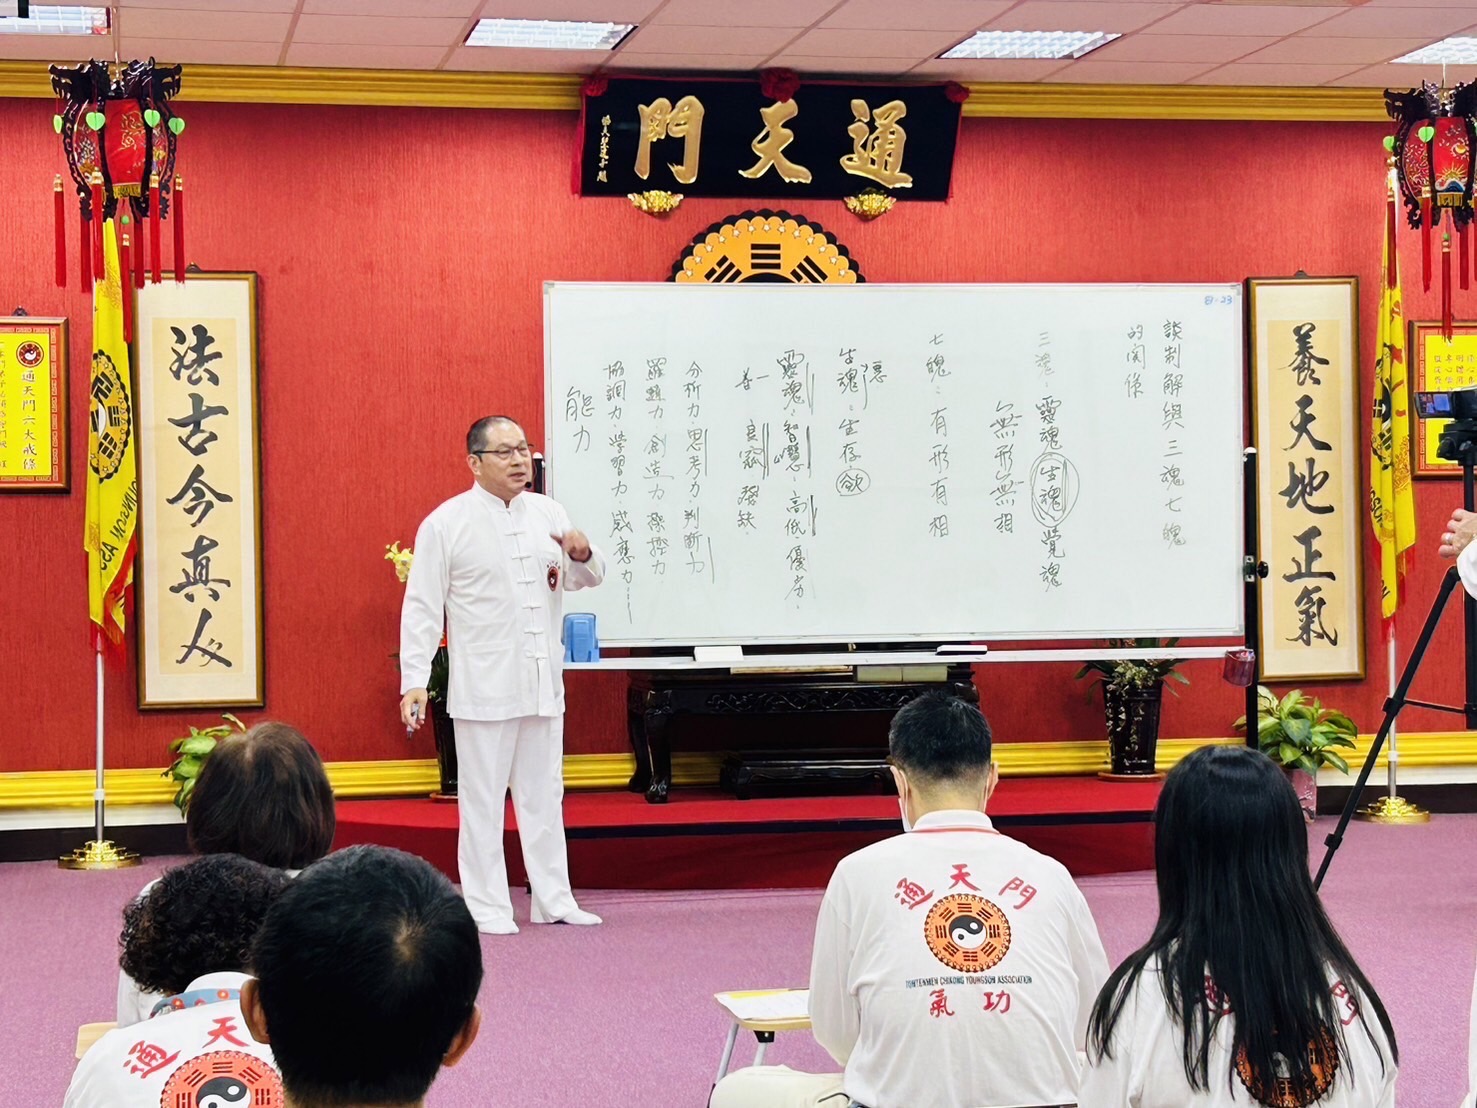 通天門
法古今真人
養天地正氣
通天門六大戒條
8-23
談制解與三魂七魄
的関係
三魂：靈魂 生魂 覺魂
無形無相
七魄：有形有相
生魂：生存.欲
靈魂.智慧.高低.優劣.
良窳 殘缺.
分析力.思考力.判斷力
邏輯力.創造力
協調力.學習力.感應力
能力
通天門
TUNTENMEN CHIKUNG YOUNGSON ASSOCIATION
氣功
通天
門